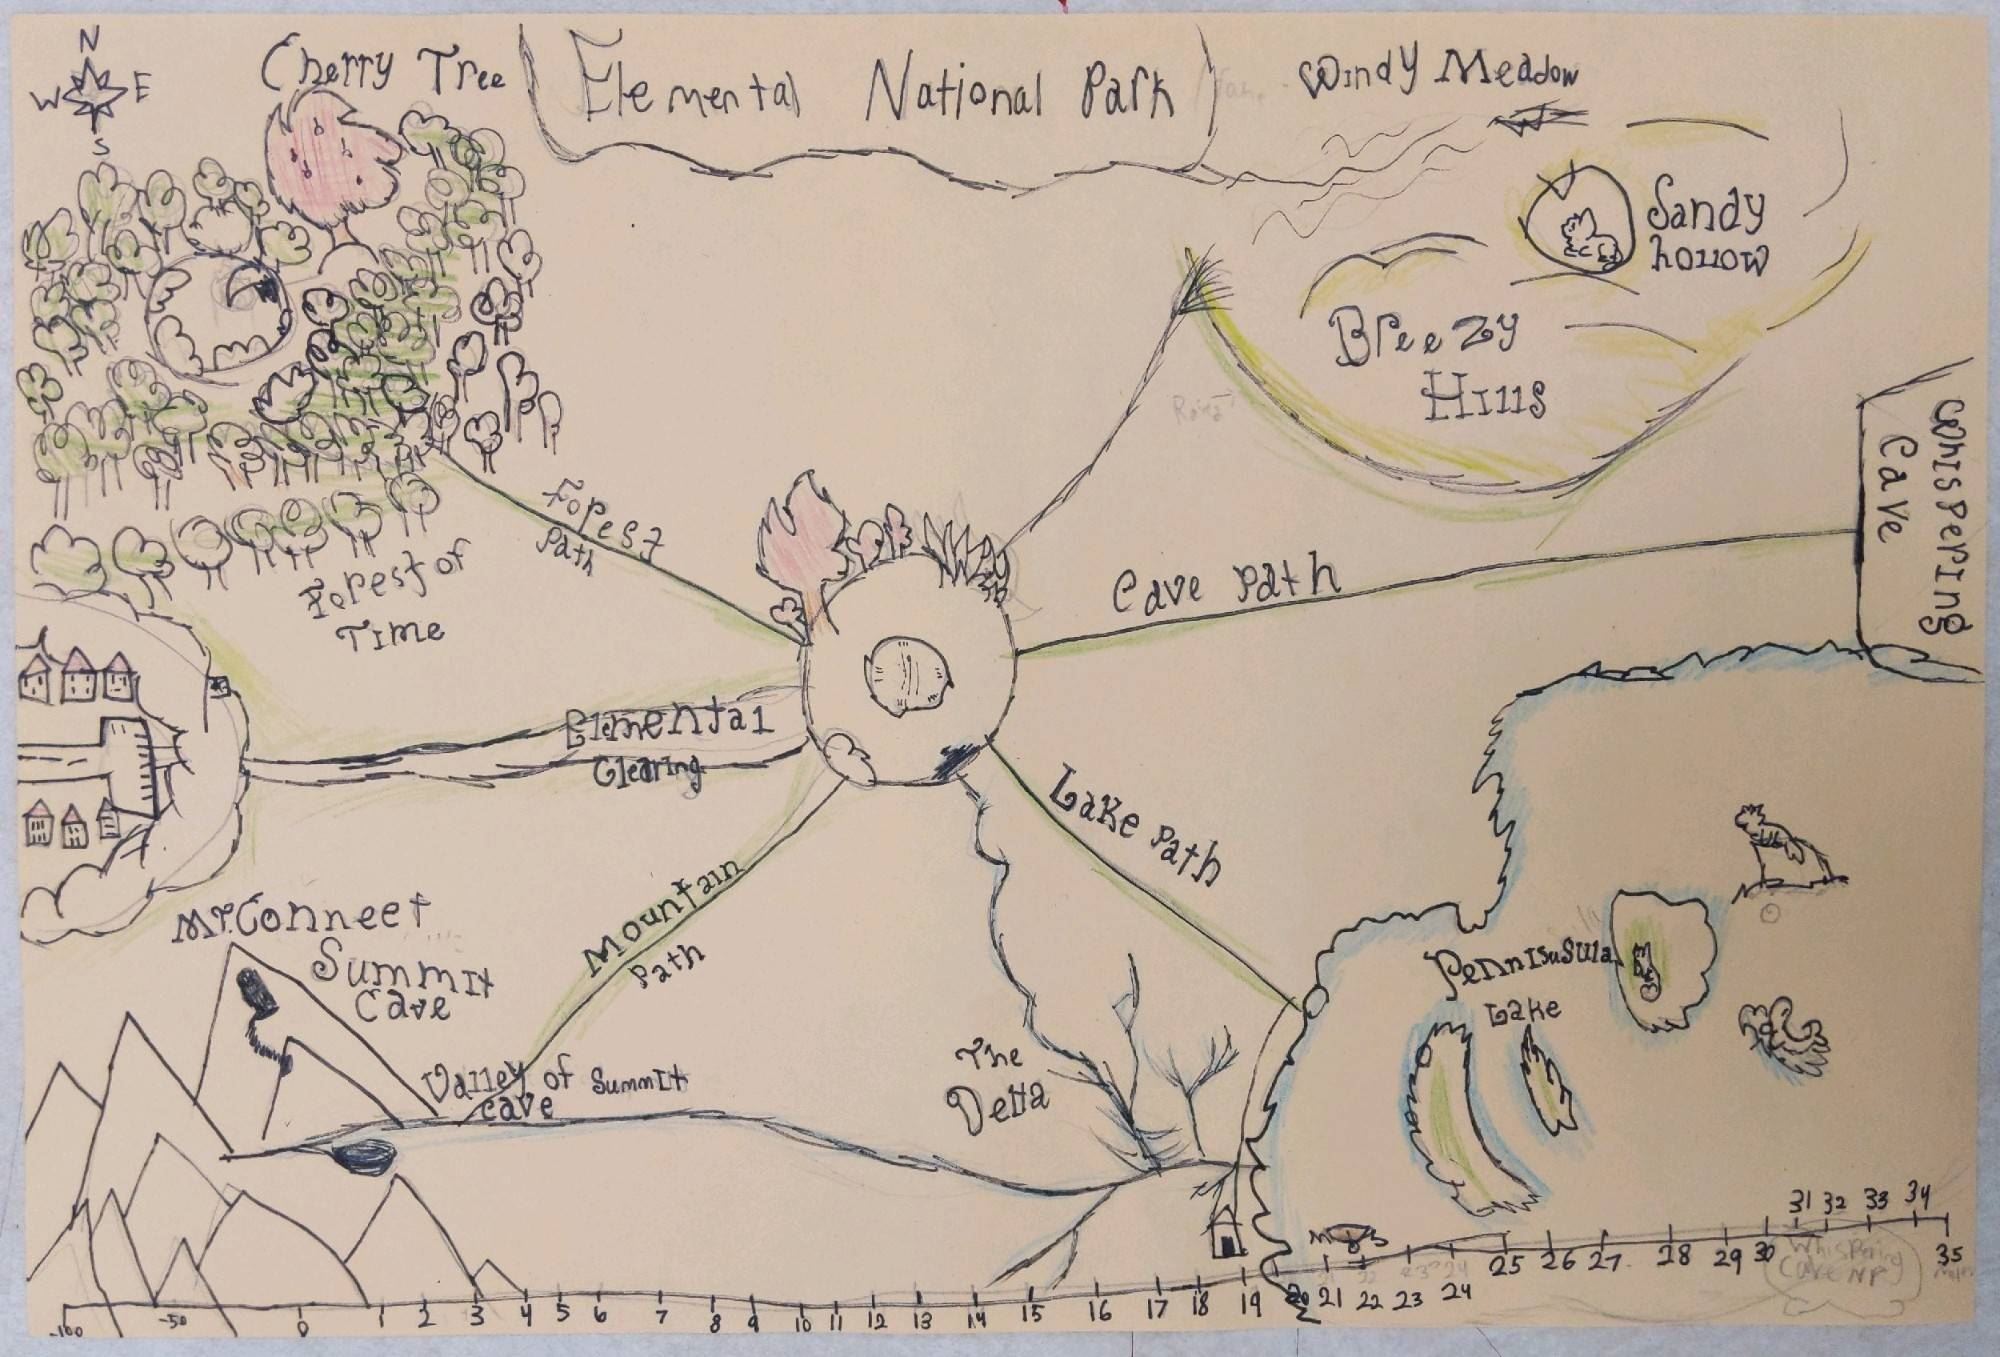 N
W E
S
Cherry Tree
Elemental National Park
Windy Meadow
Sandy
hollow
Breezy
Hills
Whispering
Cave
Forest
Path
Cave Path
Forest of
Time
Elmental
Glearing
Lake Path
Mountain
Path
Mt. Conneet
Summit
Cave
Valley of Summit
cave
The
Delta
Pennisusula
Lake
-100 -50 0 1 2 3 4 5 6 7 8 9 10 11 12 13 14 15 16 17 18 19 20 21 22 23 24 25 26 27 28 29 30 31 32 33 34 35
Whispering
Cave NP